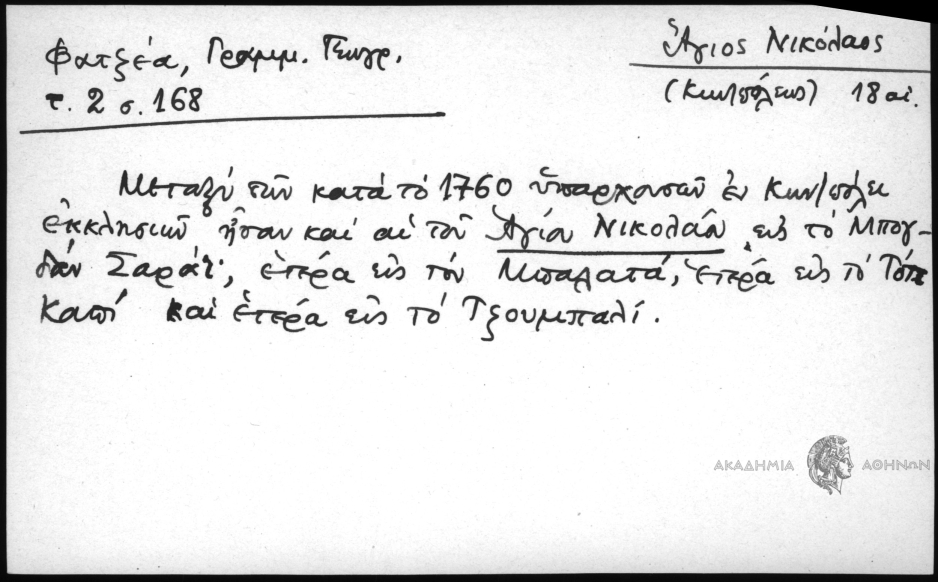 Φατζέα, Γραμμ. Γεωγρ.
τ. 2 σ. 168
Ἅγιος Νικόλαος
(Κων/πόλεως) 18 αἰ.
Μεταξύ τῶν κατά τό 1760 ὑπαρχουσῶν ἐν Κων/πόλει
ἐκκλησιῶν ἦσαν καί αἱ τοῦ Ἁγίου Νικολάου εἰς τό Μπογ-
δάν Σαράϊ, ἑτέρα εἰς τόν Μπαλατά, ἑτέρα εἰς τό Τόπ
Καπί καί ἑτέρα εἰς τό Τζουμπαλί.
ΑΚΑΔΗΜΙΑ ΑΘΗΝΩΝ